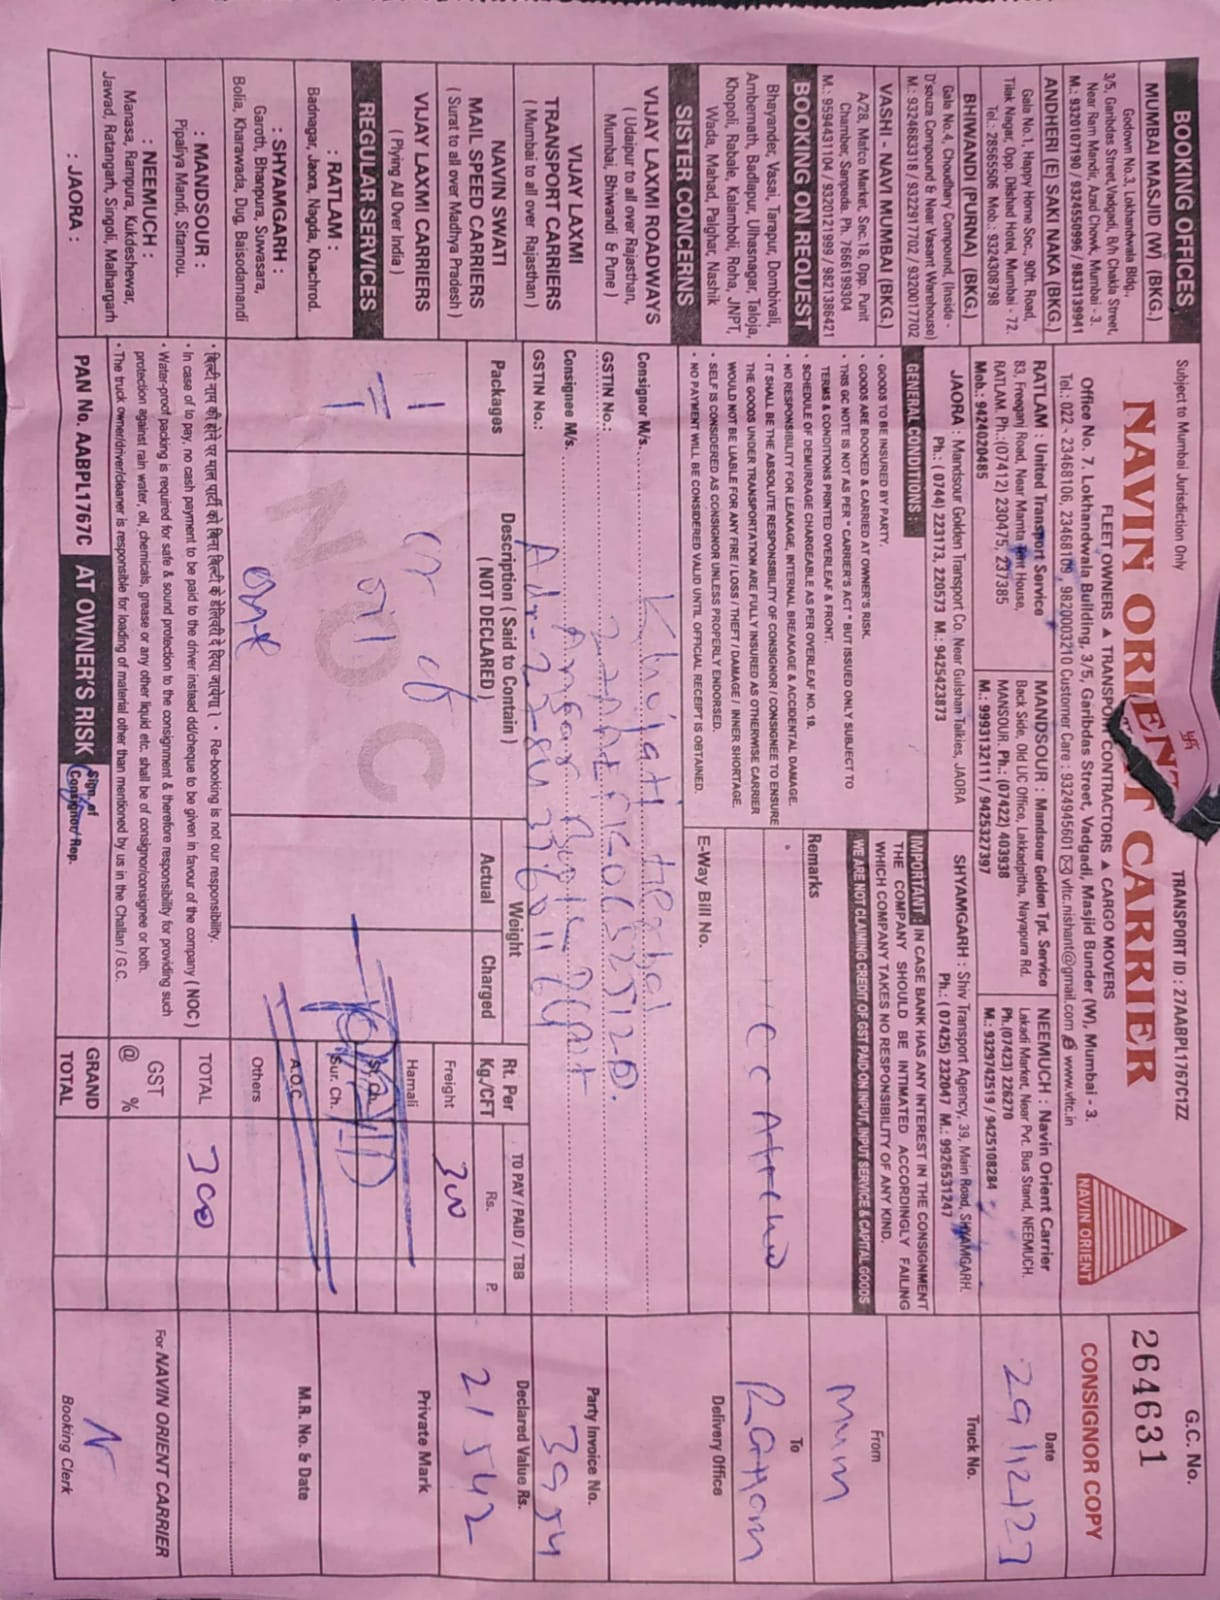 BOOKING OFFICES
MUMBAI MASJID (W) (BKG.)
Godown No.3, Lokhandwala Bldg.,
3/5, Garibdas Street, Vadgadi, B/h Chakla Street,
Near Ram Mandir, Azad Chowk, Mumbai - 3.
M.: 9320107190 / 9324550996 / 9833139941
ANDHERI (E) SAKI NAKA (BKG.)
Gala No.1, Happy Home Soc., 90ft. Road,
Tilak Nagar, Opp. Dilshad Hotel, Mumbai - 72.
Tel.: 28565506 Mob.: 9324308798
BHIWANDI (PURNA) (BKG.)
Gala No.4, Choudhary Compound, (Inside -
D'souza Compound & Near Vasant Warehouse)
M.: 9324683318 / 9322917702 / 9320017702
VASHI - NAVI MUMBAI (BKG.)
A/28, Mafco Market, Sec.18, Opp. Punit
Chamber, Sanpada, Ph. 7666199304
M.: 9594431104 / 9320121999 / 9821386421
BOOKING ON REQUEST
Bhayander, Vasai, Tarapur, Dombivali,
Ambernath, Badlapur, Ulhasnagar, Taloja,
Khopoli, Rabale, Kalamboli, Roha, JNPT,
Wada, Mahad, Palghar, Nashik
SISTER CONCERNS
VIJAY LAXMI ROADWAYS
( Udaipur to all over Rajasthan,
Mumbai, Bhiwandi & Pune )
VIJAY LAXMI
TRANSPORT CARRIERS
( Mumbai to all over Rajasthan )
NAVIN SWATI
MAIL SPEED CARRIERS
( Surat to all over Madhya Pradesh )
VIJAY LAXMI CARRIERS
( Plying All Over India )
REGULAR SERVICES
: RATLAM :
Badnagar, Jaora, Nagda, Khachrod.
: SHYAMGARH :
Garoth, Bhanpura, Suwasara,
Bolia, Kharawada, Dug, Baisodamandi
: MANDSOUR :
Pipaliya Mandi, Sitamou.
: NEEMUCH :
Manasa, Rampura, Kukdeshewar,
Jawad, Ratangarh, Singoli, Malhargarh
: JAORA :
Subject to Mumbai Jurisdiction Only
TRANSPORT ID : 27AABPL1767C1ZZ
NAVIN ORIENT CARRIER
FLEET OWNERS ▲ TRANSPORT CONTRACTORS ▲ CARGO MOVERS
NAVIN ORIENT
Office No. 7, Lokhandwala Building, 3/5, Garibdas Street, Vadgadi, Masjid Bunder (W), Mumbai - 3.
Tel.: 022 - 23468106, 23468109, 9820003210 Customer Care : 9324945601 vltc.nishant@gmail.com www.vltc.in
RATLAM : United Transport Service
83, Freeganj Road, Near Mamta Tent House,
RATLAM. Ph.:(07412) 230475, 237385
Mob.: 9424020485
MANDSOUR : Mandsour Golden Tpt. Service
Back Side, Old LIC Office, Lakkadpitha, Nayapura Rd.
MANSOUR. Ph.: (07422) 403938
M.: 9993132111 / 9425327397
NEEMUCH : Navin Orient Carrier
Lakadi Market, Near Pvt. Bus Stand, NEEMUCH.
Ph.(07423) 226270
M.: 9329742519 / 9425108284
JAORA : Mandsour Golden Transport Co. Near Gulshan Talkies, JAORA
Ph.: ( 0744) 223173, 220573 M.: 9425423873
SHYAMGARH : Shiv Transport Agency, 39, Main Road, SHYAMGARH.
Ph.: ( 07425) 232047 M.: 9926531247
GENERAL CONDITIONS :
• GOODS TO BE INSURED BY PARTY.
• GOODS ARE BOOKED & CARRIED AT OWNER'S RISK.
• THIS GC NOTE IS NOT AS PER " CARRIER'S ACT " BUT ISSUED ONLY SUBJECT TO
TERMS & CONDITIONS PRINTED OVERLEAF & FRONT.
• SCHEDULE OF DEMURRAGE CHARGEABLE AS PER OVERLEAF NO. 18.
• NO RESPONSIBILITY FOR LEAKAGE, INTERNAL BREAKAGE & ACCIDENTAL DAMAGE.
• IT SHALL BE THE ABSOLUTE RESPONSIBILITY OF CONSIGNOR / CONSIGNEE TO ENSURE
THE GOODS UNDER TRANSPORTATION ARE FULLY INSURED AS OTHERWISE CARRIER
WOULD NOT BE LIABLE FOR ANY FIRE / LOSS / THEFT / DAMAGE / INNER SHORTAGE.
• SELF IS CONSIDERED AS CONSIGNOR UNLESS PROPERLY ENDORSED.
• NO PAYMENT WILL BE CONSIDERED VALID UNTIL OFFICIAL RECEIPT IS OBTAINED.
IMPORTANT : IN CASE BANK HAS ANY INTEREST IN THE CONSIGNMENT
THE COMPANY SHOULD BE INTIMATED ACCORDINGLY FAILING
WHICH COMPANY TAKES NO RESPONSIBILITY OF ANY KIND.
WE ARE NOT CLAIMING CREDIT OF GST PAID ON INPUT, INPUT SERVICE & CAPITAL GOODS
Remarks
E-Way Bill No.
Consignor M/s.
GSTIN No.:
Consignee M/s.
GSTIN No.:
Packages
Description ( Said to Contain )
( NOT DECLARED )
Weight
Actual
Charged
Rt. Per
Kg./CFT
TO PAY / PAID / TBB
Rs.
P.
Freight
300
Hamali
St. Ch.
Sur. Ch.
A.O.C.
Others
TOTAL
300
GST
@ %
GRAND
TOTAL
NOC
PAID
• बिल्टी नाम की होने पर माल पार्टी को बिना बिल्टी के डेलिवरी दे दिया जायेगा । • Re-booking is not our responsibility.
• In case of to pay, no cash payment to be paid to the driver instead dd/cheque to be given in favour of the company ( NOC )
• Water-proof packing is required for safe & sound protection to the consignment & therefore responsibility for providing such
protection against rain water, oil, chemicals, grease or any other liquid etc. shall be of consignor/consignee or both.
• The truck owner/driver/cleaner is responsible for loading of material other than mentioned by us in the Challan / G.C.
PAN No. AABPL1767C
AT OWNER'S RISK
Sign. of
Consignor/ Rep.
G.C. No.
264631
CONSIGNOR COPY
Date
29/12/23
Truck No.
From
Mum
To
Ratlam
Delivery Office
Party Invoice No.
3954
Declared Value Rs.
21542
Private Mark
M.R. No. & Date
For NAVIN ORIENT CARRIER
Booking Clerk